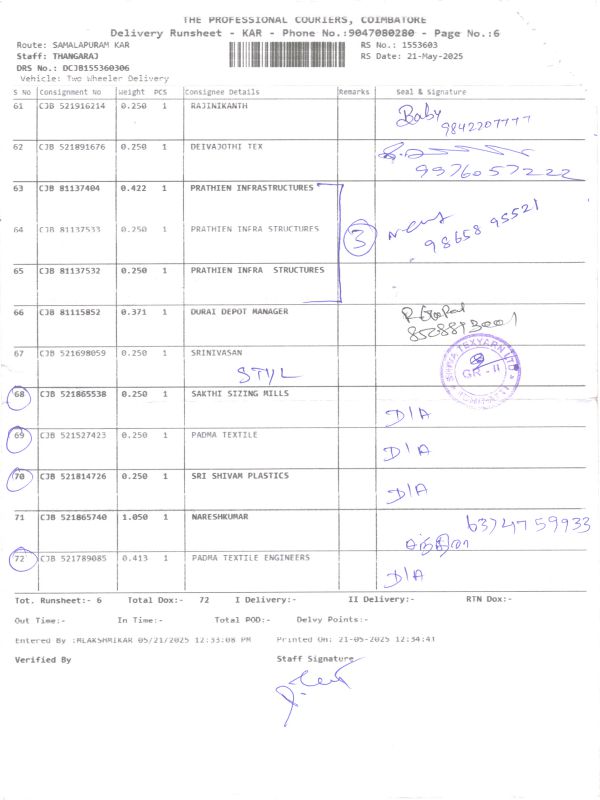 THE PROFESSIONAL COURIERS, COIMBATORE
Delivery Runsheet - KAR - Phone No.:9047080280 - Page No.:6
Route: SAMALAPURAM KAR RS No.: 1553603
Staff: THANGARAJ RS Date: 21-May-2025
DRS No.: DCJB155360306
Vehicle: Two Wheeler Delivery
S No Consignment No Weight PCS Consignee Details Remarks Seal & Signature
61 CJB 521916214 0.250 1 RAJINIKANTH Baby
9842207777
62 CJB 521891676 0.250 1 DEIVAJOTHI TEX
9976057222
63 CJB 81137404 0.422 1 PRATHIEN INFRASTRUCTURES
64 CJB 81137533 0.250 1 PRATHIEN INFRA STRUCTURES 3 98658 95521
65 CJB 81137532 0.250 1 PRATHIEN INFRA STRUCTURES
66 CJB 81115852 0.371 1 DURAI DEPOT MANAGER
67 CJB 521698059 0.250 1 SRINIVASAN
STYL GR - II
68 CJB 521865538 0.250 1 SAKTHI SIZING MILLS D/A
69 CJB 521527423 0.250 1 PADMA TEXTILE D/A
70 CJB 521814726 0.250 1 SRI SHIVAM PLASTICS D/A
71 CJB 521865740 1.050 1 NARESHKUMAR 6374759933
72 CJB 521789085 0.413 1 PADMA TEXTILE ENGINEERS D/A
Tot. Runsheet:- 6 Total Dox:- 72 I Delivery:- II Delivery:- RTN Dox:-
Out Time:- In Time:- Total POD:- Delvy Points:-
Entered By :MLAKSHMIKAR 05/21/2025 12:33:08 PM Printed On: 21-05-2025 12:34:41
Verified By Staff Signature